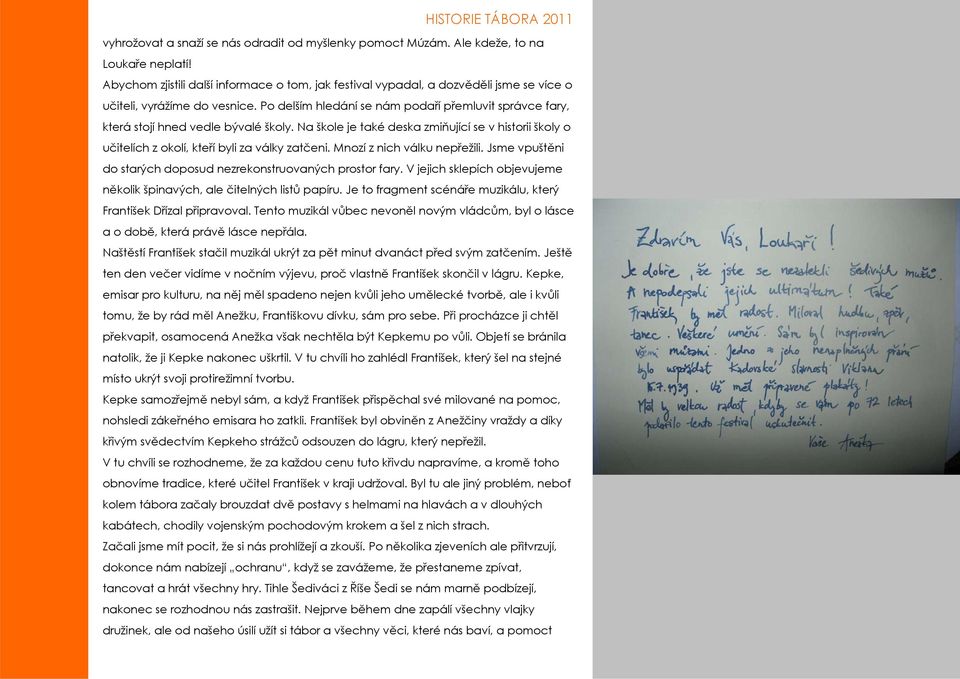 HISTORIE TÁBORA 2011
vyhrožovat a snaží se nás odradit od myšlenky pomoct Múzám. Ale kdeže, to na
Loukaře neplatí!
Abychom zjistili další informace o tom, jak festival vypadal, a dozvěděli jsme se více o
učiteli, vyrážíme do vesnice. Po delším hledání se nám podaří přemluvit správce fary,
která stojí hned vedle bývalé školy. Na škole je také deska zmiňující se v historii školy o
učitelích z okolí, kteří byli za války zatčeni. Mnozí z nich válku nepřežili. Jsme vpuštěni
do starých doposud nezrekonstruovaných prostor fary. V jejich sklepích objevujeme
několik špinavých, ale čitelných listů papíru. Je to fragment scénáře muzikálu, který
František Dřízal připravoval. Tento muzikál vůbec nevoněl novým vládcům, byl o lásce
a o době, která právě lásce nepřála.
Naštěstí František stačil muzikál ukrýt za pět minut dvanáct před svým zatčením. Ještě
ten den večer vidíme v nočním výjevu, proč vlastně František skončil v lágru. Kepke,
emisar pro kulturu, na něj měl spadeno nejen kvůli jeho umělecké tvorbě, ale i kvůli
tomu, že by rád měl Anežku, Františkovu dívku, sám pro sebe. Při procházce ji chtěl
překvapit, osamocená Anežka však nechtěla být Kepkemu po vůli. Objetí se bránila
natolik, že ji Kepke nakonec uškrtil. V tu chvíli ho zahlédl František, který šel na stejné
místo ukrýt svoji protirežimní tvorbu.
Kepke samozřejmě nebyl sám, a když František přispěchal své milované na pomoc,
nohsledi zákeřného emisara ho zatkli. František byl obviněn z Anežčiny vraždy a díky
křivým svědectvím Kepkeho strážců odsouzen do lágru, který nepřežil.
V tu chvíli se rozhodneme, že za každou cenu tuto křivdu napravíme, a kromě toho
obnovíme tradice, které učitel František v kraji udržoval. Byl tu ale jiný problém, neboť
kolem tábora začaly brouzdat dvě postavy s helmami na hlavách a v dlouhých
kabátech, chodily vojenským pochodovým krokem a šel z nich strach.
Začali jsme mít pocit, že si nás prohlížejí a zkouší. Po několika zjeveních ale přitvrzují,
dokonce nám nabízejí „ochranu“, když se zavážeme, že přestaneme zpívat,
tancovat a hrát všechny hry. Tihle Šediváci z Říše Šedi se nám marně podbízejí,
nakonec se rozhodnou nás zastrašit. Nejprve během dne zapálí všechny vlajky
družinek, ale od našeho úsilí užít si tábor a všechny věci, které nás baví, a pomoct
Zdravím Vás, Loukaři!
Je dobře, že jste se nezalekli šedivých mužů
A nepodepsali jejich ultimátum! Také
František by měl radost. Miloval hudbu, zpěv,
tanec. Veškeré umění. Sám byl inspirován
všemi múzami. Jedno z jeho nenaplněných přání
bylo uspořádat Kadovské slavnosti Viklanu
15.7.1939. Už měl připravené plakáty!
Měl by velkou radost, kdyby se vám po 72 letech
podařilo tento festival uskutečnit.
Vaše Anežka